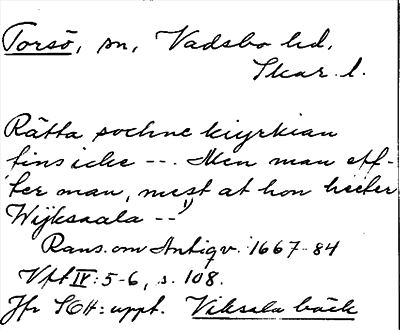 Torsö, sn, Vadsbo hd,
Skar. l.
Rätta sochne kiyrkian
fins icke --. Men man eff-
ter man, mest at hon heeter
Wijksaala --"
Rans. om Antiqv. 1667-84
Vfft IV: 5-6, s. 108.
Jfr SOH: uppt. Viksala bäck